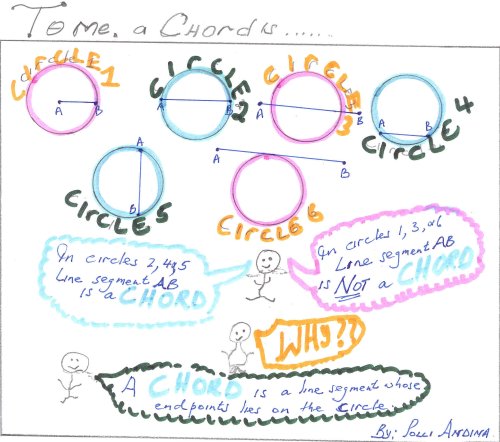 To me, a Chord is......
CIRCLE 1
A B
CIRCLE 2
A B
CIRCLE 3
A B
CIRCLE 4
A B
CIRCLE 5
A
B
CIRCLE 6
A B
In circles 2, 4, 5
Line segment AB
is a CHORD
In circles 1, 3, or 6
Line segment AB
is NOT a CHORD
WHY??
A CHORD is a line segment whose
endpoints lies on the circle.
By: Polli Andina